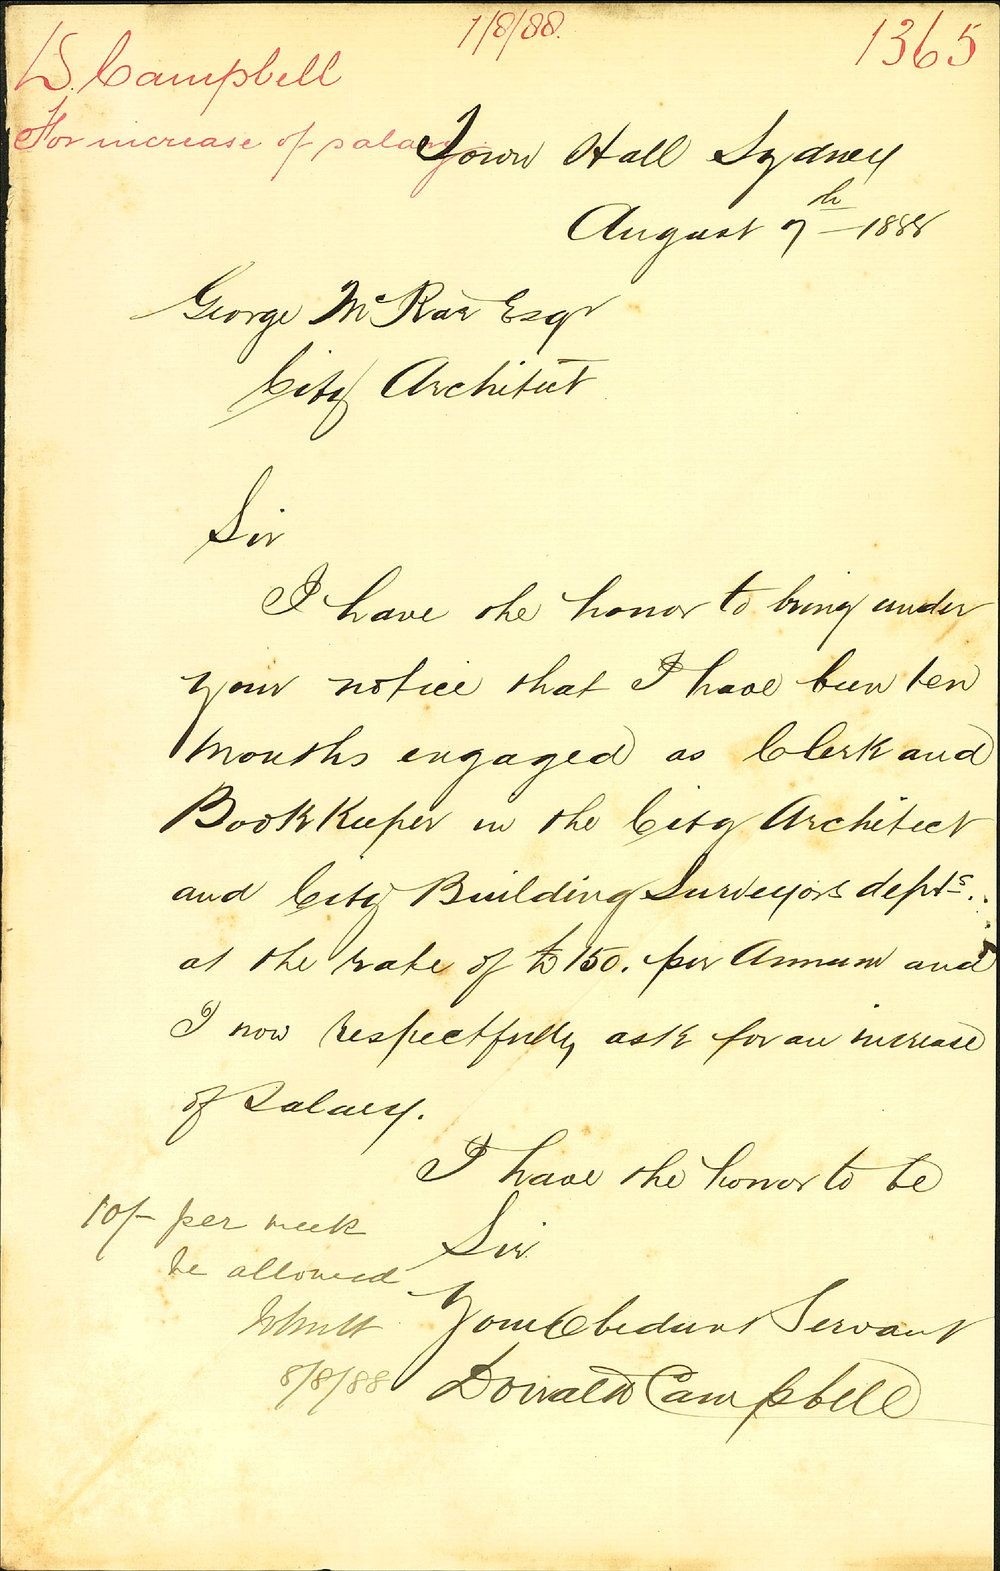 7/8/88.
1365
D. Campbell
For increase of salary
Town Hall Sydney
August 7th 1888
George McRae Esqr
City Architect
Sir
I have the honor to bring under
your notice that I have been ten
months engaged as Clerk and
Book Keeper in the City Architect
and City Building Surveyors depts.
at the rate of £150. per Annum and
I now respectfully ask for an increase
of Salary.
I have the honor to be
Sir
Your Obedient Servant
Donald Campbell
10/- per week
be allowed
8/8/88